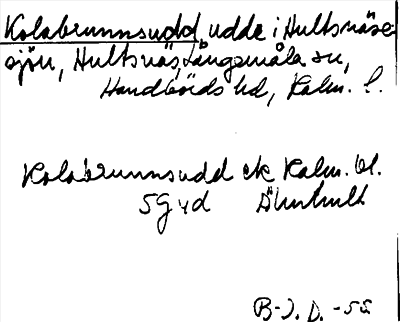 Kolabrunnsudd, udde i Hultsnäse-
sjön, Hultsnäs, Långasjö sn,
Handbörds hd, Kalm. l.
Kolabrunnsudd ek Kalm. bl.
5G 4d
B-J. D. -55